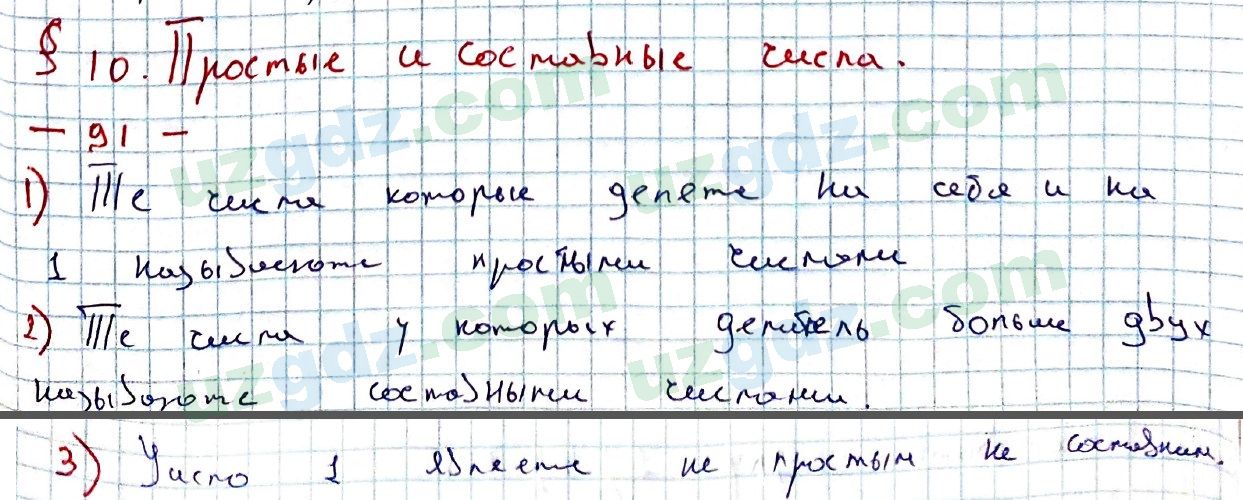 § 10. Простые и составные числа.
— 91 —
1) Те числа которые делете на себя и на
1 называюте простыми числами
2) Те числа у которых делитель больше двух
называюте составными числами.
3) Число 1 явлеете не простым не составным.
uzgdz.com
uzgdz.com
uzgdz.com
uzgdz.com